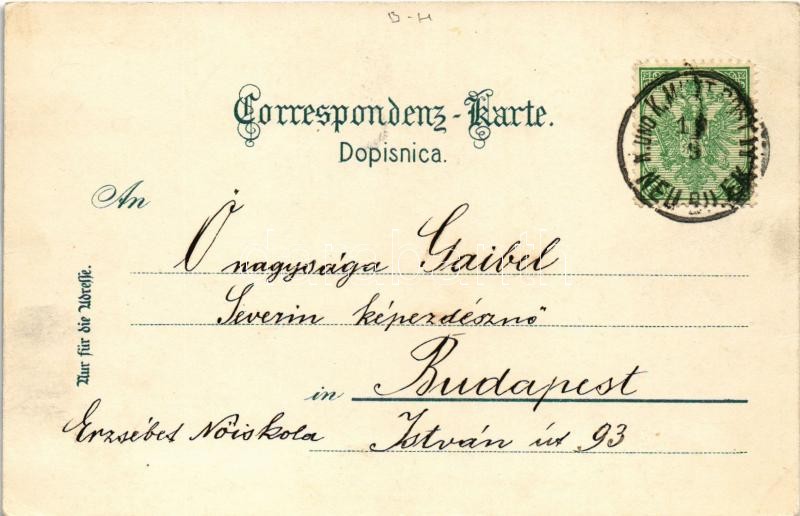 B-H
Correspondenz-Karte.
Dopisnica.
An
Ő nagysága Gaibel
Severin képezdésznő
in Budapest
Erzsébet Nőiskola István út 93
Nur für die Adresse.
K. UND K. MILIT. POST IV
19
NEU BILEK